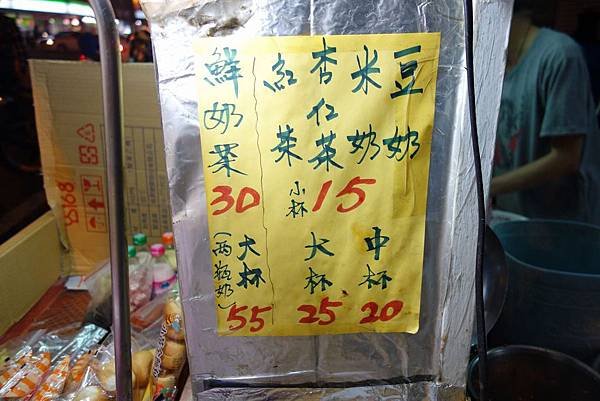 豆奶
米奶
杏仁茶
紅茶
小杯 15
中杯 20
大杯 25
鮮奶茶
30
大杯
(兩瓶奶)
55